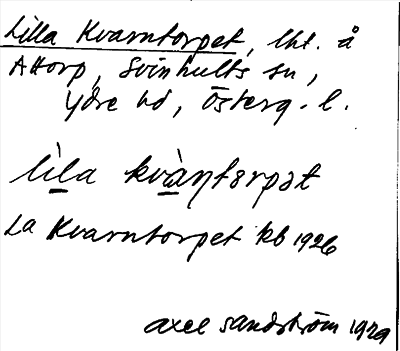 Lilla Kvarntorpet, lht. å
Attorp, Svinhults sn,
Ydre hd, Österg. l.
lìla kvàṇtərpət
La Kvarntorpet kb 1926
Axel Sandström 1929